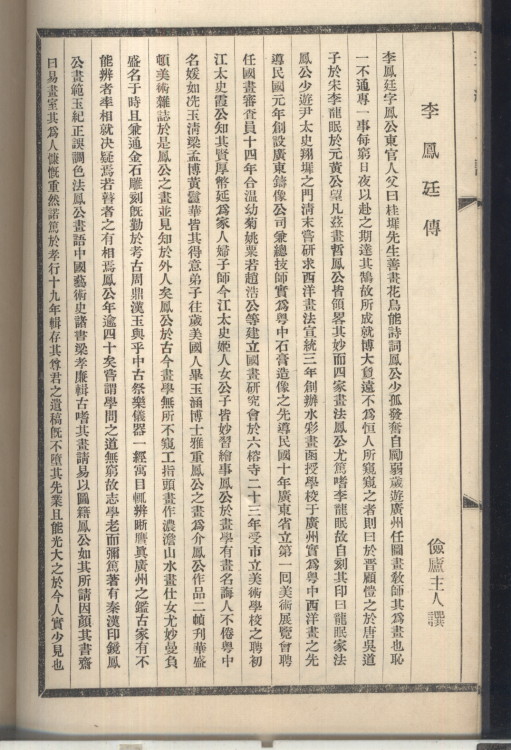 李鳳廷傳
儉廬主人譔
李鳳廷字鳳公東官人父曰桂墀先生善畫花鳥能詩詞鳳公少孤發奮自勵弱歲遊廣州任圖畫敎師其爲畫也恥
一不通專一事每窮日夜以赴之期達其鵠故所成就博大敻遠不爲恒人所窺窺之者則曰於晉顧愷之於唐吳道
子於宋李龍眠於元黃公望凡茲畫哲鳳公皆領畧其妙而四家畫法鳳公尤篤嗜李龍眠故自刻其印曰龍眠家法
鳳公少遊尹太史翔墀之門淸末嘗研求西洋畫法宣統三年創辦水彩畫函授學校于廣州實爲粤中西洋畫之先
導民國元年創設廣東鑄像公司兼總技師實爲粤中石膏造像之先導民國十年廣東省立第一回美術展覽會聘
任國畫審査員十四年合溫幼菊姚粟若趙浩公等建立國畫研究會於六榕寺二十三年受市立美術學校之聘初
江太史霞公知其賢厚幣延爲家人婦子師今江太史姬人女公子皆妙習繪事鳳公於畫學有畫名誨人不倦粤中
名媛如冼玉淸梁孟博黃蘊華皆其得意弟子往歲美國人畢玉涵博士雅重鳳公之畫爲介鳳公作品二幀刋華盛
頓美術雜誌於是鳳公之畫並見知於外人矣鳳公於古今畫學無所不窺工指頭畫作濃澹山水畫仕女尤妙曼負
盛名于時且兼通金石雕刻旣勤於考古周鼎漢玉與乎中古祭樂儀器一經寓目輒辨晰贋眞廣州之鑑古家有不
能辨者率相就決疑焉若瞽者之有相焉鳳公年逾四十矣嘗謂學問之道無窮故志學老而彌篤著有秦漢印鏡鳳
公畫範玉紀正誤調色法鳳公畫語中國藝術史諸書梁孝廉輯古嗜其畫請易以圖籍鳳公如其所請因顔其書齋
曰易畫室其爲人慷慨重然諾篤於孝行十九年輯存其尊君之遺稿旣不墮其先業且能光大之於今人實少見也